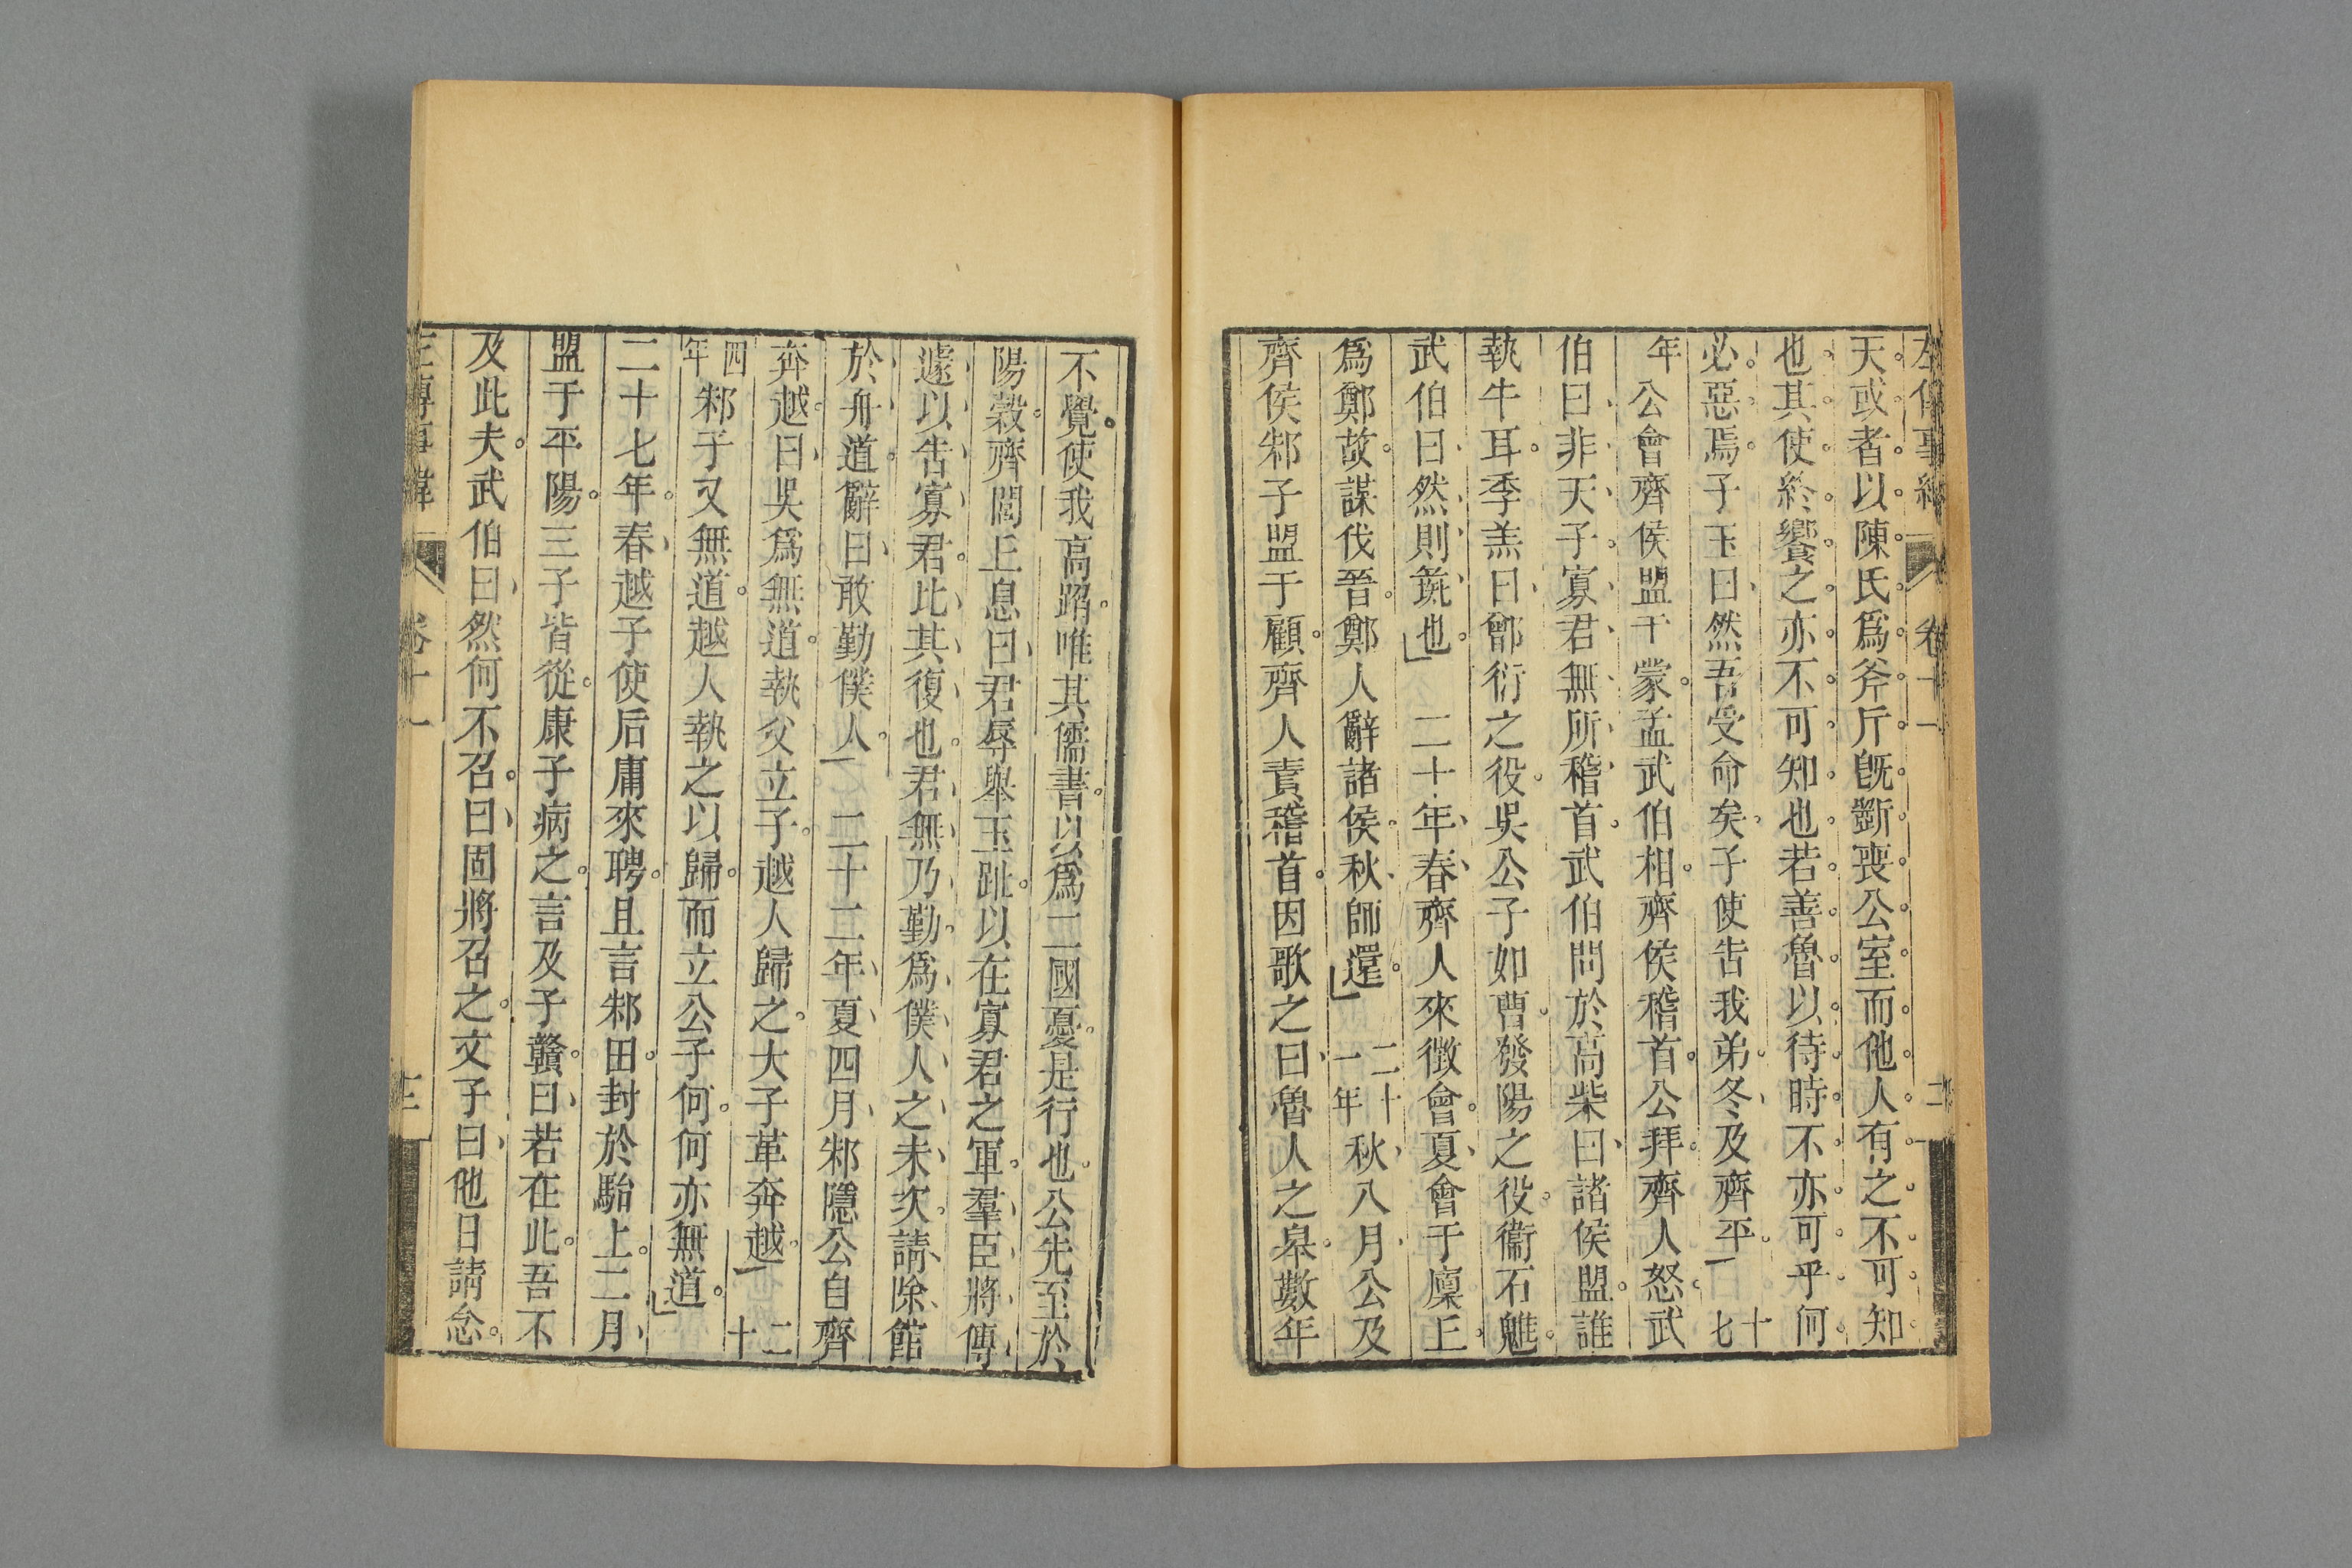 左傳事緯 卷十一 二
天或者以陳氏爲斧斤旣斵喪公室而他人有之不可知
也其使終饗之亦不可知也若善魯以待時不亦可乎何
必惡焉子玉曰然吾受命矣子使告我弟冬及齊平十七
年公會齊侯盟于蒙孟武伯相齊侯稽首公拜齊人怒武
伯曰非天子寡君無所稽首武伯問於高柴曰諸侯盟誰
執牛耳季羔曰鄫衍之役吳公子如曹發陽之役衞石魋
武伯曰然則彘也二十年春齊人來徵會夏會于廩丘
爲鄭故謀伐晉鄭人辭諸侯秋師還二十一年秋八月公及
齊侯邾子盟于顧齊人責稽首因歌之曰魯人之皋數年
不覺使我高蹈唯其儒書以爲二國憂是行也公先至於
陽穀齊閭丘息曰君辱舉玉趾以在寡君之軍羣臣將傳
遽以告寡君此其復也君無乃勤爲僕人之未次請除館
於舟道辭曰敢勤僕人二十二年夏四月邾隱公自齊
奔越曰吳爲無道執父立子越人歸之大子革奔越二十
四年邾子又無道越人執之以歸而立公子何何亦無道
二十七年春越子使后庸來聘且言邾田封於駘上二月
盟于平陽三子皆從康子病之言及子贛曰若在此吾不
及此夫武伯曰然何不召曰固將召之文子曰他日請念
左傳事緯 卷十一 三